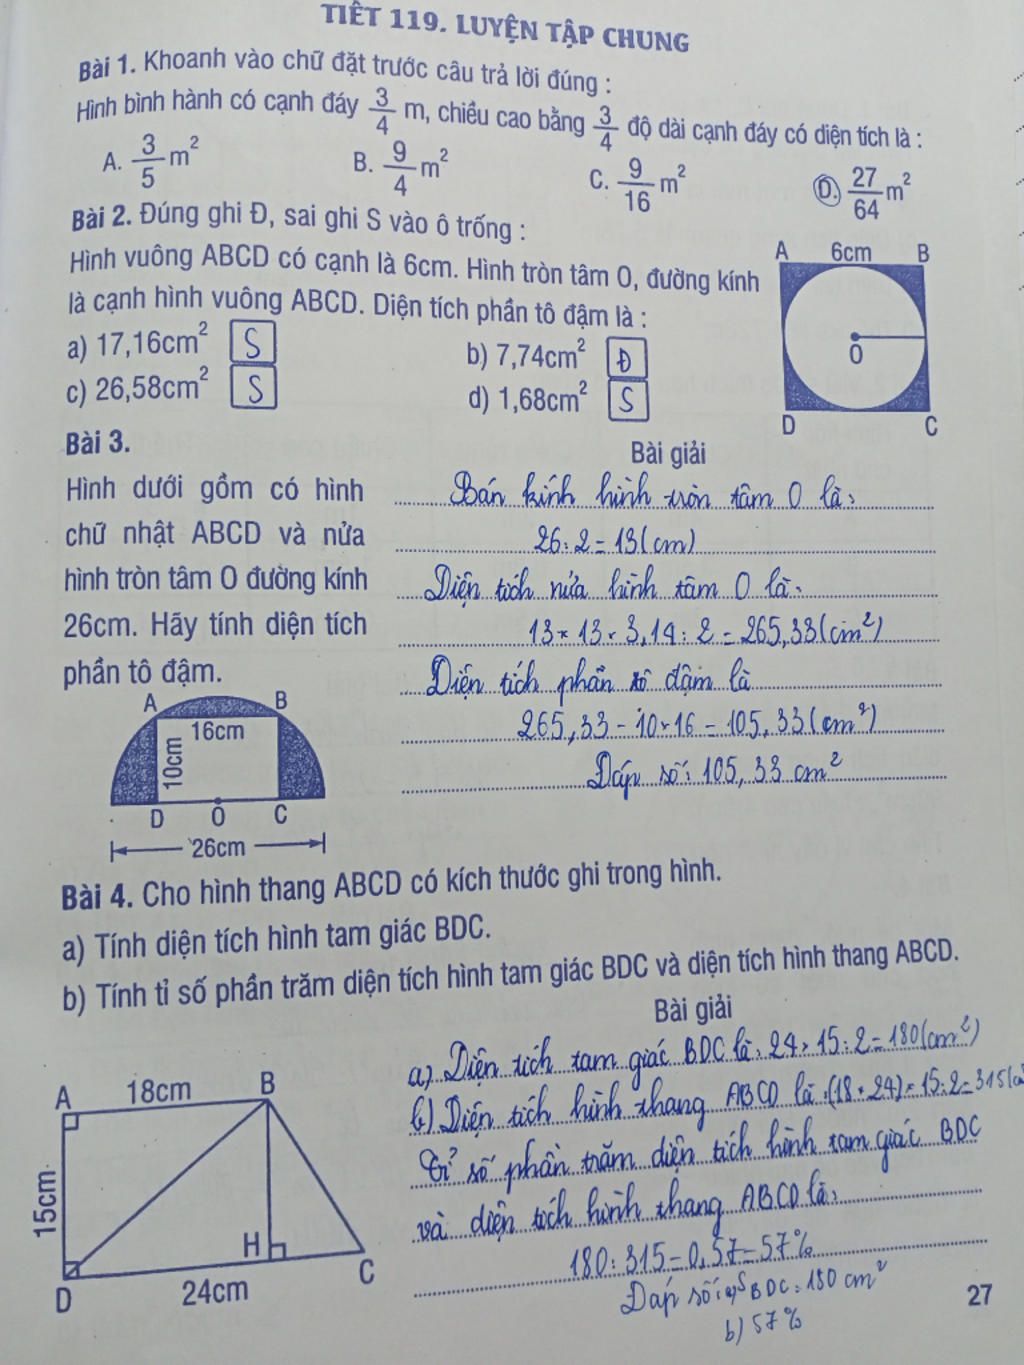 TIẾT 119. LUYỆN TẬP CHUNG
Bài 1. Khoanh vào chữ đặt trước câu trả lời đúng :
Hình bình hành có cạnh đáy 3/4 m, chiều cao bằng 3/4 độ dài cạnh đáy có diện tích là :
A. 3/5 m² B. 9/4 m² C. 9/16 m² D. 27/64 m²
Bài 2. Đúng ghi Đ, sai ghi S vào ô trống :
Hình vuông ABCD có cạnh là 6cm. Hình tròn tâm O, đường kính
là cạnh hình vuông ABCD. Diện tích phần tô đậm là :
a) 17,16cm² S b) 7,74cm² Đ
c) 26,58cm² S d) 1,68cm² S
A 6cm B
O
D C
Bài 3.
Hình dưới gồm có hình
chữ nhật ABCD và nửa
hình tròn tâm O đường kính
26cm. Hãy tính diện tích
phần tô đậm.
A B
16cm
10cm
D O C
26cm
Bài giải
Bán kính hình tròn tâm O là:
26:2=13(cm)
Diện tích nửa hình tâm O là:
13×13×3,14:2=265,33(cm²)
Diện tích phần tô đậm là
265,33-10×16=105,33(cm²)
Đáp số: 105,33 cm²
Bài 4. Cho hình thang ABCD có kích thước ghi trong hình.
a) Tính diện tích hình tam giác BDC.
b) Tính tỉ số phần trăm diện tích hình tam giác BDC và diện tích hình thang ABCD.
Bài giải
a) Diện tích tam giác BDC là: 24×15:2=180(cm²)
b) Diện tích hình thang ABCD là:(18+24)×15:2=315(c
Tỉ số phần trăm diện tích hình tam giác BDC
và diện tích hình thang ABCD là:
180:315=0,57=57%
Đáp số: a) S BDC: 180 cm²
b) 57%
A 18cm B
15cm
H
D 24cm C
27